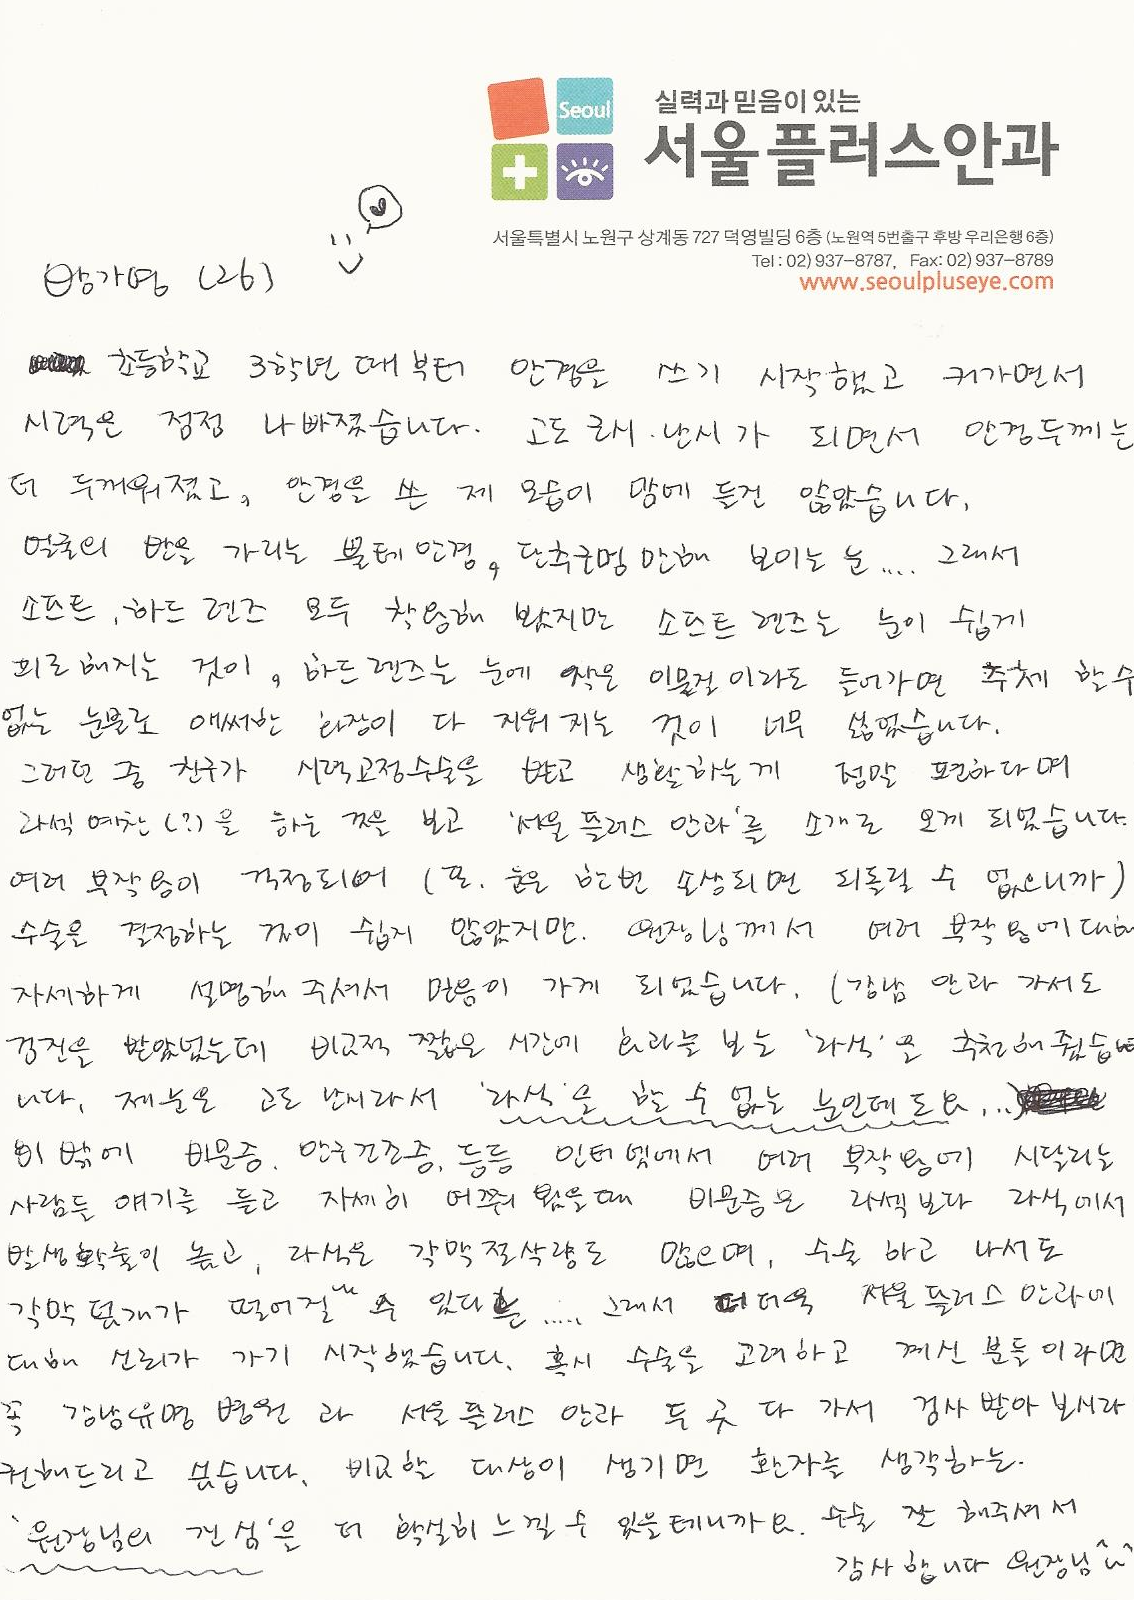 Seoul
실력과 믿음이 있는
서울플러스안과
서울특별시 노원구 상계동 727 덕영빌딩 6층 (노원역 5번출구 후방 우리은행 6층)
Tel : 02) 937-8787, Fax: 02) 937-8789
www.seoulpluseye.com
가영 (26)
초등학교 3학년 때부터 안경을 쓰기 시작했고 커가면서
시력은 점점 나빠졌습니다. 고도근시.난시가 되면서 안경두께는
더 두꺼워졌고, 안경을 쓴 제 모습이 맘에 들건 않았습니다.
얼굴의 반을 가리는 뿔테안경, 단추구멍만해 보이는 눈.... 그래서
소프트, 하드렌즈 모두 착용해 봤지만 소프트렌즈는 눈이 쉽게
피로해지는 것이, 하드렌즈는 눈에 작은 이물질이라도 들어가면 주체 할수
없는 눈물로 애써한 화장이 다 지워지는 것이 너무 싫었습니다.
그러던 중 친구가 시력교정수술을 받고 생활하는게 정말 편하다며
라섹예찬(!?)을 하는 것을 보고 '서울플러스 안과'를 소개로 오게 되었습니다.
여러 부작용이 걱정되어 (또. 눈은 한번 손상되면 되돌릴 수 없으니까)
수술을 결정하는 것이 쉽지 않았지만. 원장님께서 여러 부작용에대해
자세하게 설명해주셔서 믿음이 가게 되었습니다. (강남 안과 가서도
검진을 받았었는데 비교적 짧은 시간에 효과를 보는 '라식'을 추천해줬습
니다. 제눈은 고도난시라서 '라식'을 할 수 없는 눈인데도요...)
이 밖에 비문증. 안구건조증. 등등 인터넷에서 여러 부작용에 시달리는
사람들 얘기를 듣고 자세히 여쭤 봤을때 비문증은 라섹보다 라식에서
발생확률이 높고, 라식은 각막절삭량도 많으며, 수술하고 나서도
각막덮개가 떨어질 수 있다는..... 그래서 더욱 서울플러스안과에
대해 신뢰가 가기 시작했습니다. 혹시 수술을 고려하고 계신 분들이라면
꼭 강남유명 병원 과 서울플러스 안과 두 곳 다 가서 검사 받아보시라
권해드리고 싶습니다. 비교할 대상이 생기면 환자를 생각하는.
'원장님의 진심'을 더 확실히 느낄 수 있을테니까요. 수술 잘 해주셔서
감사합니다 원장님^u^